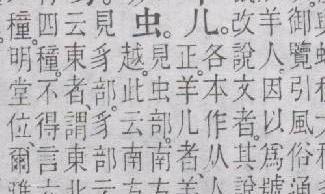 御覽引風俗通
羊人。因以為號
改說文者。其說
儿。
各本作从人
正羊儿者羊
虫。
見虫部。南方
越此云南方
見豸部。豸部云
云東者、謂東北
四種不得言
種。明堂位爾雅